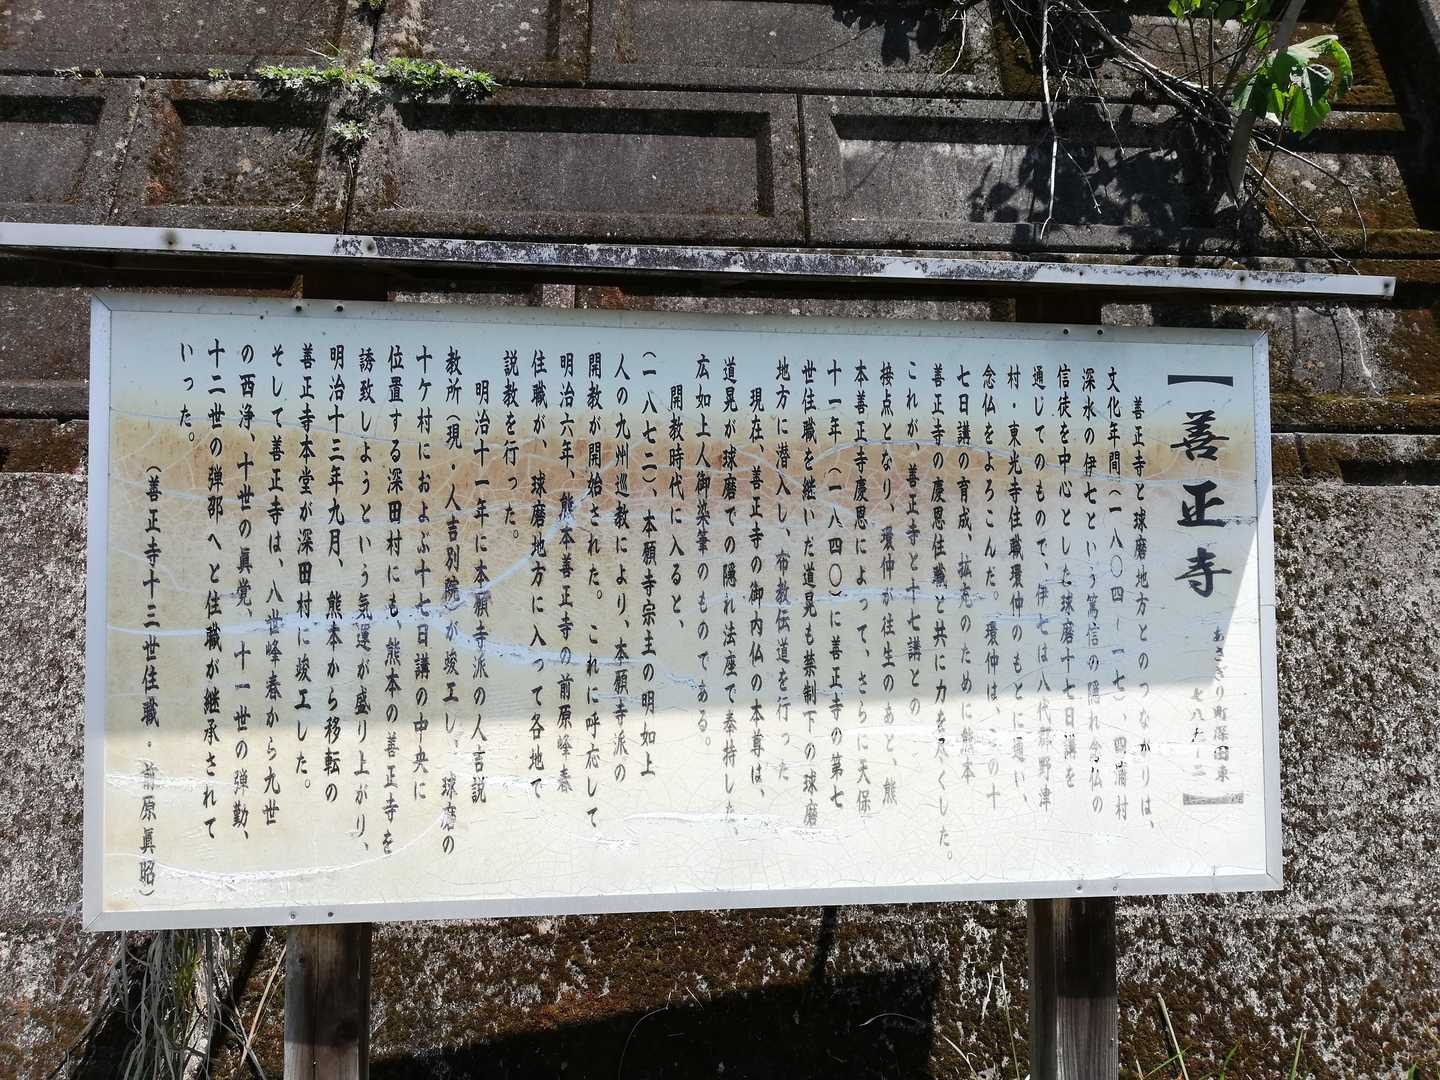 【善正寺】
あさぎり町深田東
七八九ー二
善正寺と球磨地方とのつながりは、
文化年間(一八〇四ー一七)、四浦村
深水の伊七という篤信の隠れ念仏の
信徒を中心とした球磨十七日講を
通じてのもので、伊七は八代郡野津
村・東光寺住職環仲のもとに通い、
念仏をよろこんだ。環仲は、この十
七日講の育成、拡充のために熊本
善正寺の慶恩住職と共に力を尽くした。
これが、善正寺と十七講との
接点となり、環仲が往生のあと、熊
本善正寺慶恩によって、さらに天保
十一年(一八四〇)に善正寺の第七
世住職を継いだ道晃も禁制下の球磨
地方に潜入し、布教伝道を行った
現在、善正寺の御内仏の本尊は、
道晃が球磨での隠れ法座で奉持した、
広如上人御染筆のものである。
開教時代に入ると、
(一八七二)、本願寺宗主の明如上
人の九州巡教により、本願寺派の
開教が開始された。これに呼応して
明治六年、熊本善正寺の前原峰春
住職が、球磨地方に入って各地で
説教を行った。
明治十一年に本願寺派の人吉説
教所(現・人吉別院)が竣工し、球磨の
十ケ村におよぶ十七日講の中央に
位置する深田村にも、熊本の善正寺を
誘致しようという気運が盛り上がり、
明治十三年九月、熊本から移転の
善正寺本堂が深田村に竣工した。
そして善正寺は、八世峰春から九世
の西浄、十世の眞覚、十一世の弾勤、
十二世の弾那へと住職が継承されて
いった。
(善正寺十三世住職・前原眞昭)